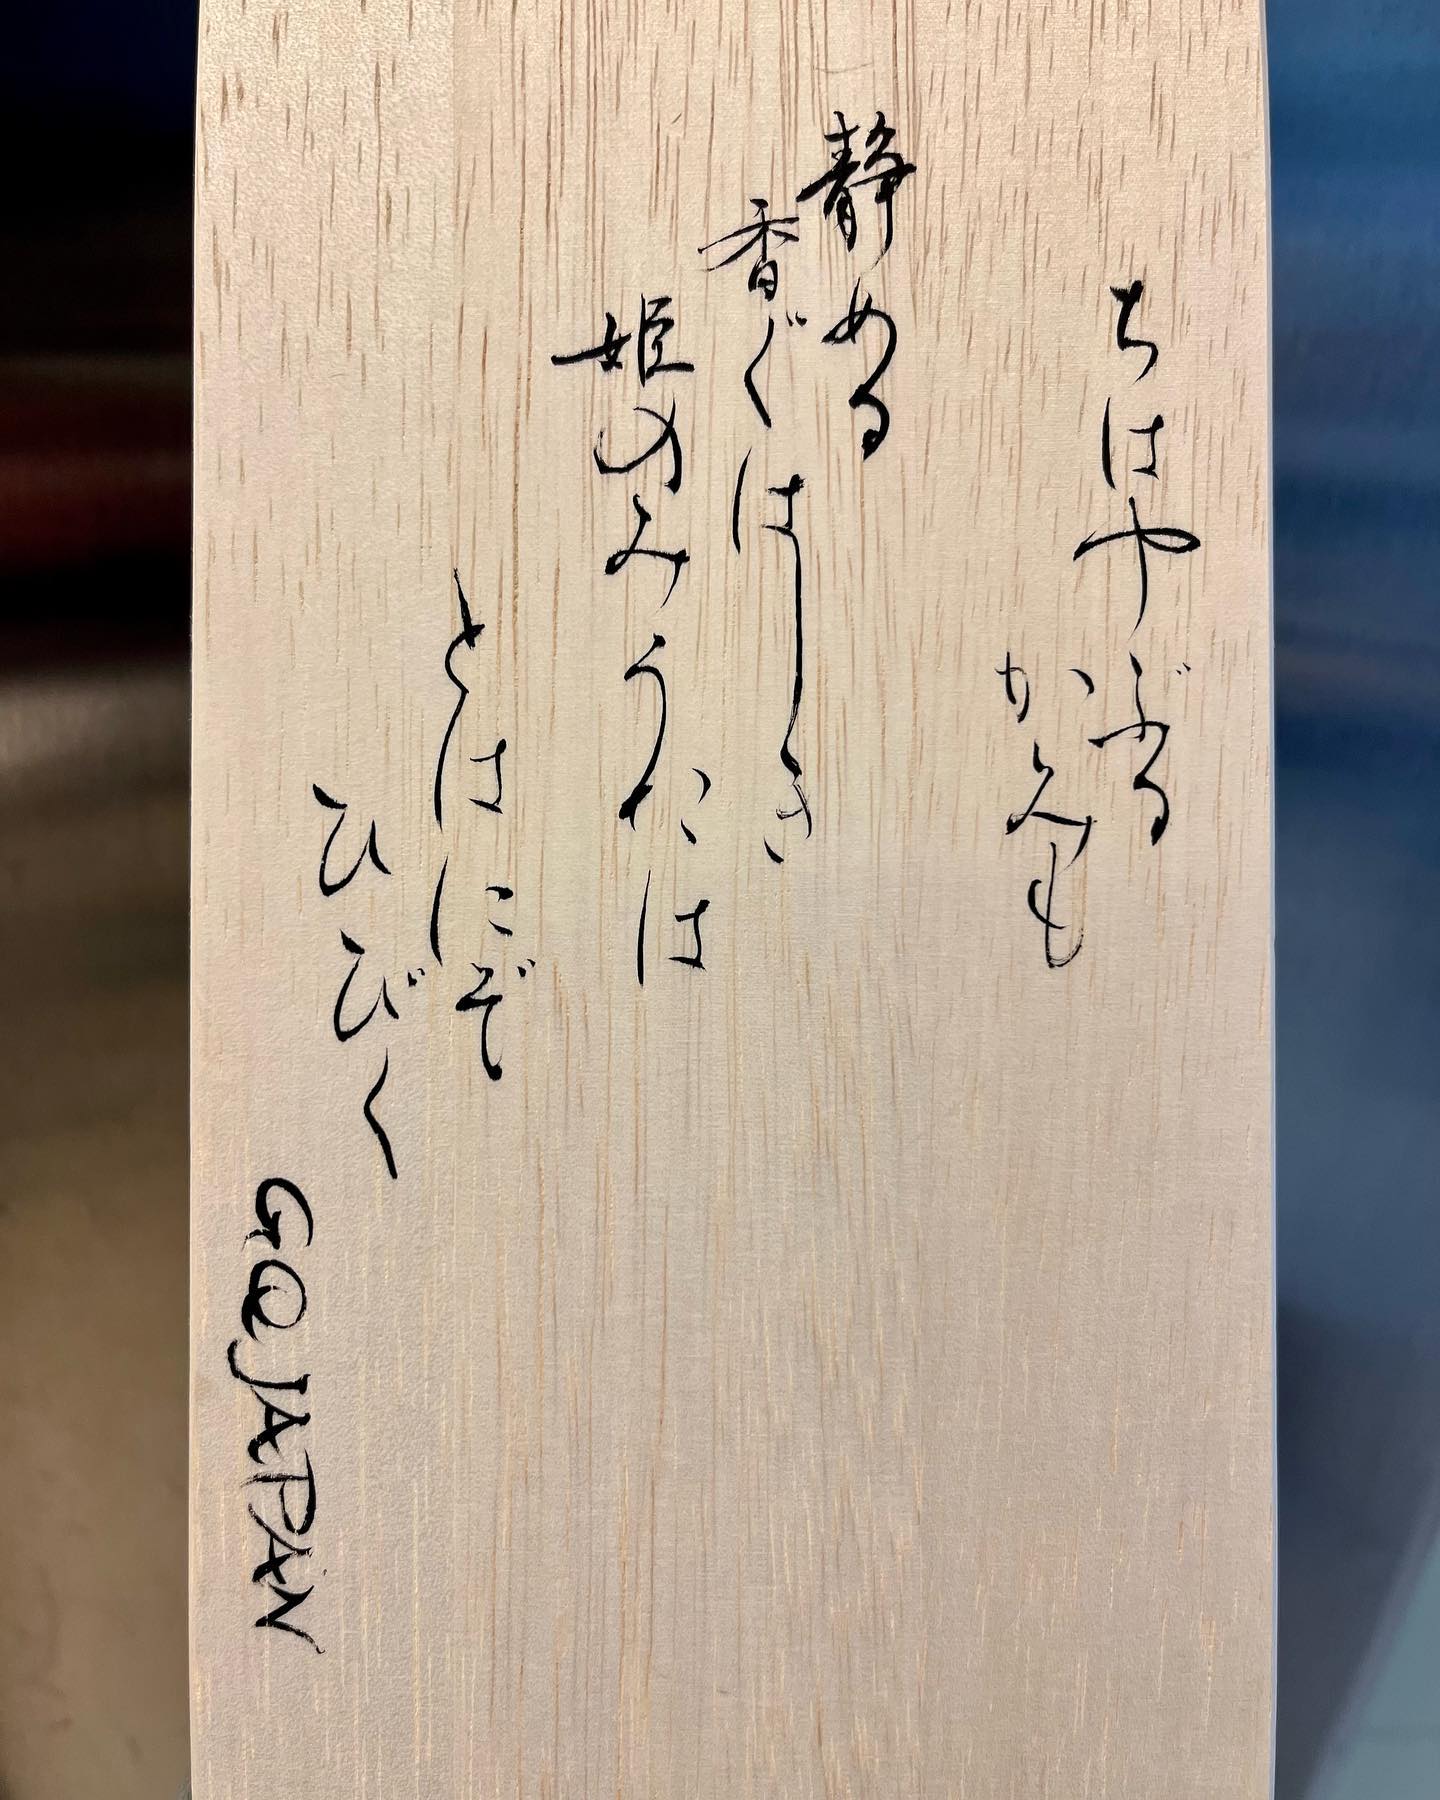 ちはやぶる
かみも
静める
香ぐはしき
姫のみうたは
とはにぞ
ひびく
GQ JAPAN